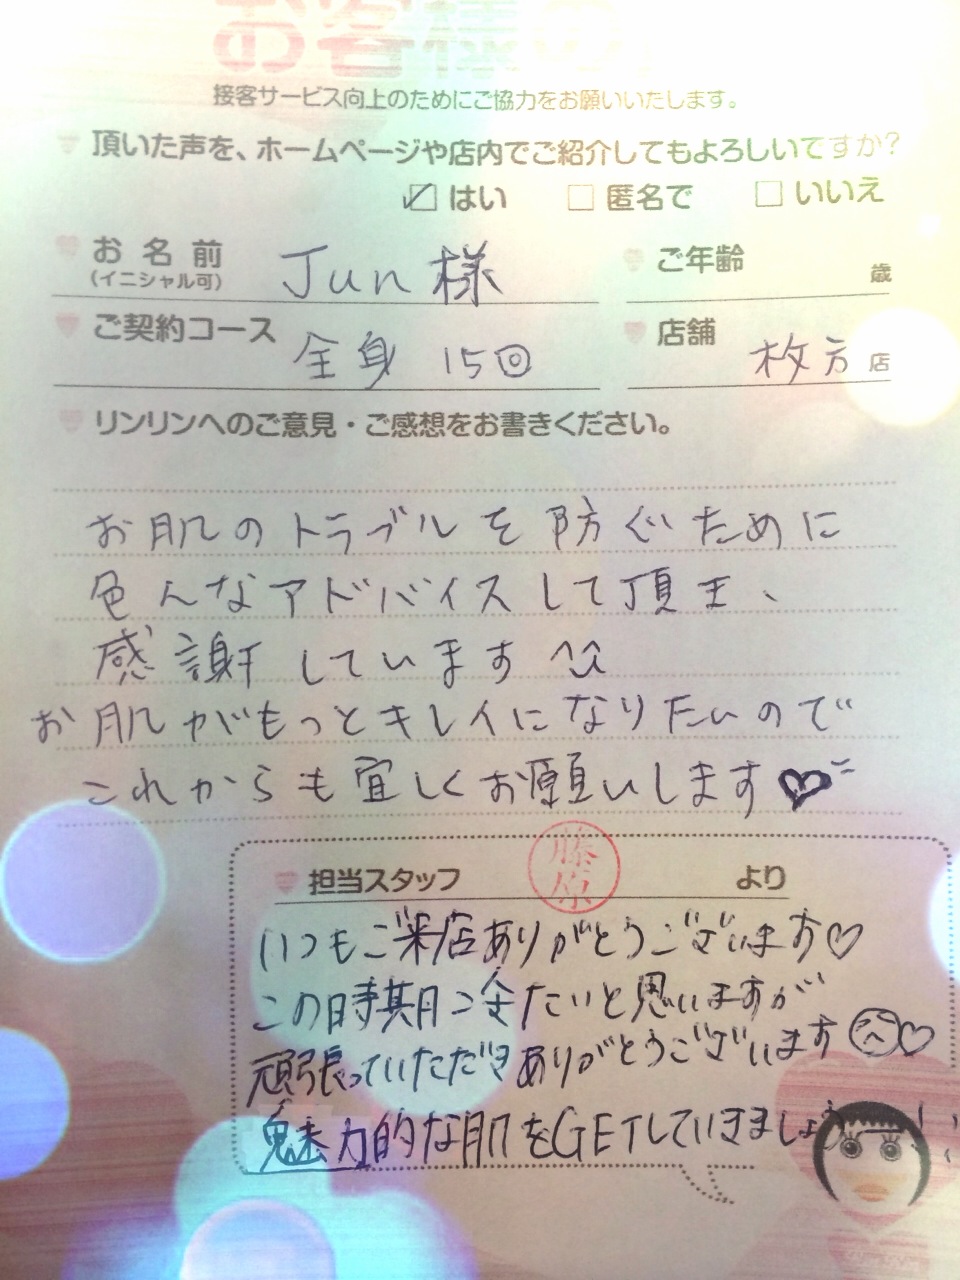 お客様の
接客サービス向上のためにご協力をお願いいたします。
頂いた声を、ホームページや店内でご紹介してもよろしいですか?
☑ はい □ 匿名で □ いいえ
お名前 Jun様 ご年齢 歳
(イニシャル可)
ご契約コース 全身 15回 店舗 枚方 店
リンリンへのご意見・ご感想をお書きください。
お肌のトラブルを防ぐために
色んなアドバイスして頂ま、
感謝しています^^
お肌がもっとキレイになりたいので
これからも宜しくお願いします♡
担当スタッフ 藤原 より
いつもご来店ありがとうございます♡
この時期二金たいと思いますが
頑張っていただきありがとうございます♡
魅力的な肌をGETしていきましょ